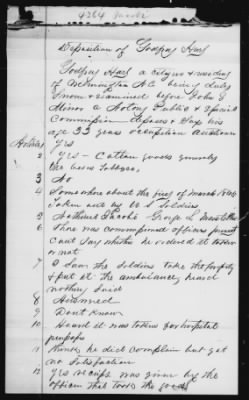 4264 Jacobs
Deposition of Godfrey Hart
Godfrey Hart a citizen & resident
of Wilmington N.C. being duly
sworn & examined before John J
a Notary Public & Special
Commission deposes & says his
age 33 years occupation auctioneer
Articles Yes
2 Yes - Cotton goods
tobacco,
3 No
4 Somewhere about the first of March 1865
Taken by U S Soldiers
5 Nathaniel Jacobs George L
6 There was commissioned officers present
Cant say whether he ordered it taken
or not
7 I saw the soldiers take the property
& put it the ambulance, heard
nothing said
8 Answered
9 Dont Know
10 Heard it was taken for hospital
purposes
11 he did complain but got
no Satisfaction
12 Yes receipt was given by the
officer that took the goods